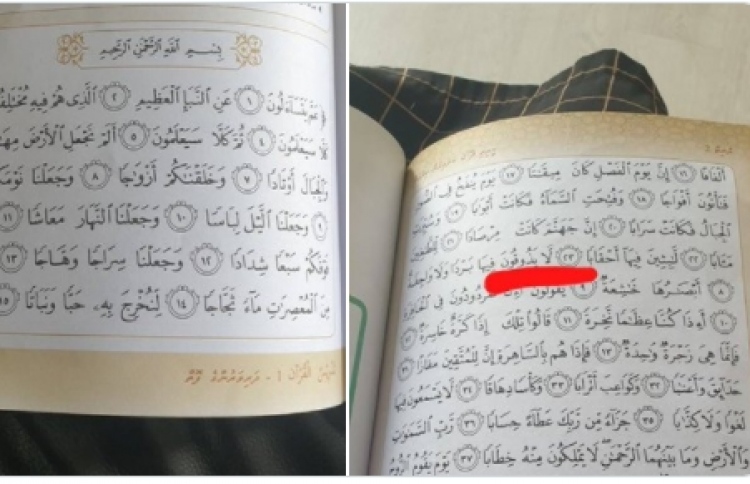 بِسْمِ ٱللَّهِ ٱلرَّحْمَٰنِ ٱلرَّحِيمِ
﴿عَمَّ يَتَسَآءَلُونَ ١ عَنِ ٱلنَّبَإِ ٱلْعَظِيمِ ٢ ٱلَّذِى هُمْ فِيهِ مُخْتَلِفُ
كَلَّا سَيَعْلَمُونَ ٤ ثُمَّ كَلَّا سَيَعْلَمُونَ ٥ أَلَمْ نَجْعَلِ ٱلْأَرْضَ مِهَٰ
وَٱلْجِبَالَ أَوْتَادًا ٧ وَخَلَقْنَٰكُمْ أَزْوَٰجًا ٨ وَجَعَلْنَا نَوْمَكُ
٩ وَجَعَلْنَا ٱلَّيْلَ لِبَاسًا ١٠ وَجَعَلْنَا ٱلنَّهَارَ مَعَاشًا ١١
فَوْقَكُمْ سَبْعًا شِدَادًا ١٢ وَجَعَلْنَا سِرَاجًا وَهَّاجًا ١٣
مِنَ ٱلْمُعْصِرَٰتِ مَآءً ثَجَّاجًا ١٤ لِّنُخْرِجَ بِهِۦ حَبًّا وَنَبَاتًا ١٥
ٱلْقُرْآن 1 - ދަރިވަރުންގެ ފޮތް
أَلْفَافًا ١٦ إِنَّ يَوْمَ ٱلْفَصْلِ كَانَ مِيقَٰتًا ١٧ يَوْمَ يُنفَخُ فِى ٱلصُّورِ
فَتَأْتُونَ أَفْوَاجًا ١٨ وَفُتِحَتِ ٱلسَّمَآءُ فَكَانَتْ أَبْوَٰبًا ١٩ وَسُيِّرَتِ
ٱلْجِبَالُ فَكَانَتْ سَرَابًا ٢٠ إِنَّ جَهَنَّمَ كَانَتْ مِرْصَادًا ٢١ لِّلطَّٰغِينَ
مَـَٔابًا ٢٢ لَّٰبِثِينَ فِيهَآ أَحْقَابًا ٢٣ لَّا يَذُوقُونَ فِيهَا بَرْدًا وَلَا
٨ أَبْصَٰرُهَا خَٰشِعَةٌ ٩ يَقُولُونَ لَمَرْدُودُونَ فِى ٱلْحَافِرَةِ
١٠ أَءِذَا كُنَّا عِظَٰمًا نَّخِرَةً ١١ قَالُوا۟ تِلْكَ إِذًا كَرَّةٌ خَاسِرَةٌ ١٢
فَإِنَّمَا هِىَ زَجْرَةٌ وَٰحِدَةٌ ١٣ فَإِذَا هُم بِٱلسَّاهِرَةِ إِنَّ لِلْمُتَّقِينَ مَفَازًا ٣١
حَدَآئِقَ وَأَعْنَٰبًا ٣٢ وَكَوَاعِبَ أَتْرَابًا ٣٣ وَكَأْسًا دِهَاقًا ٣٤ لَّا يَسْمَعُونَ فِيهَا
لَغْوًا وَلَا كِذَّٰبًا ٣٥ جَزَآءً مِّن رَّبِّكَ عَطَآءً حِسَابًا ٣٦ رَّبِّ ٱلسَّمَٰوَٰتِ
وَٱلْأَرْضِ وَمَا بَيْنَهُمَا ٱلرَّحْمَٰنِ لَا يَمْلِكُونَ مِنْهُ خِطَابًا ٣٧ يَوْمَ يَقُومُ ٱلرُّوحُ